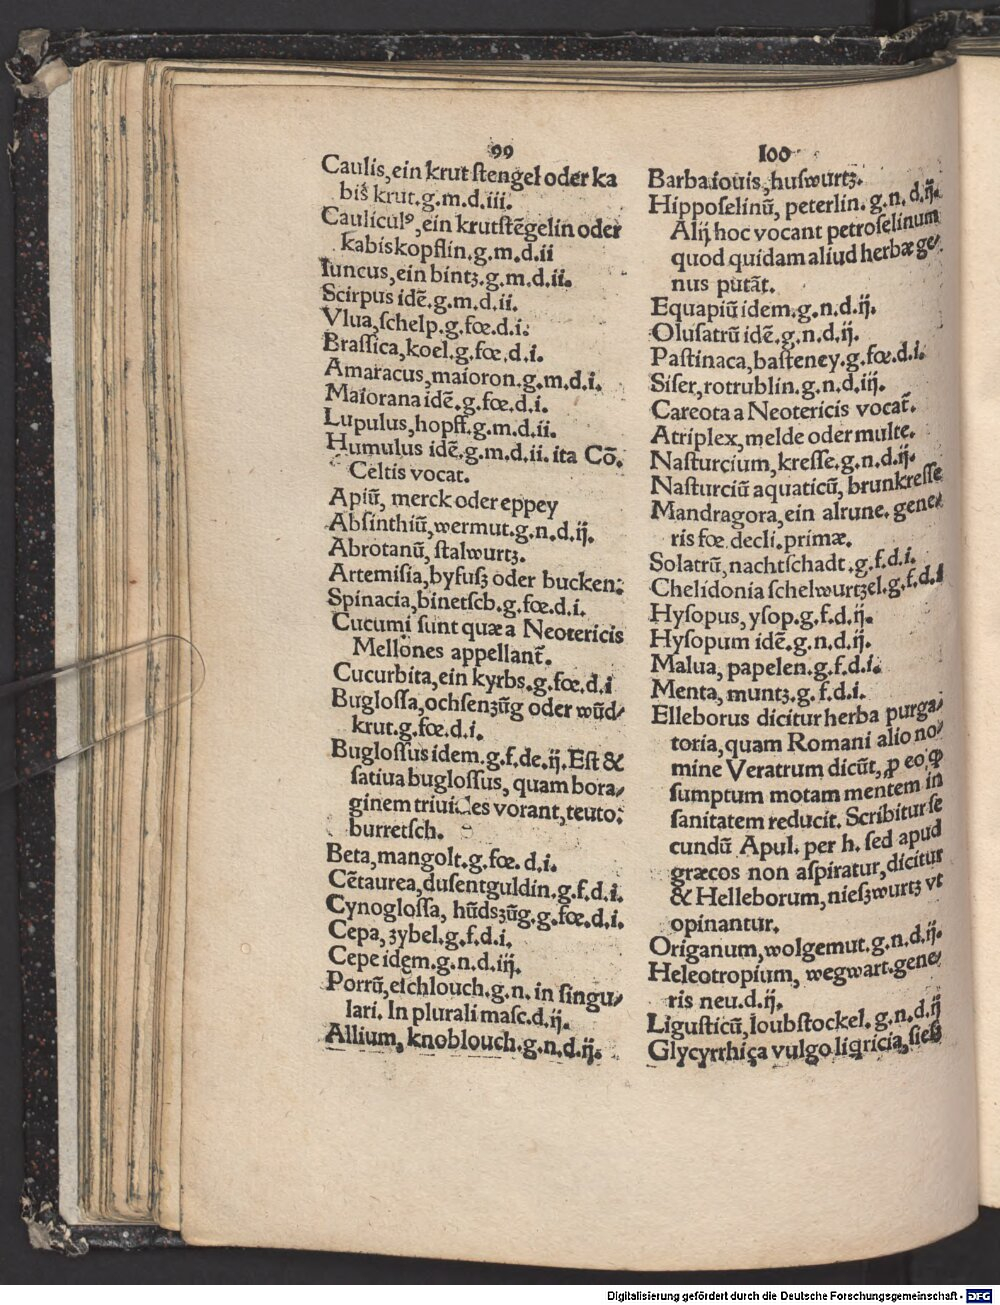 99
Caulis,ein krut stengel oder ka
bis̃ krut.g.m.d.iii.
Caulicul⁹,ein krutstẽgelin oder
kabiskopflin.g.m.d.ii
Iuncus,ein bintʒ.g.m.d.ii.
Scirpus idẽ.g.m.d.ii.
Vlua,schelp.g.fœ.d.i.
Brassica,koel.g.fœ.d.i.
Amaracus,maioron.g.m.d.i.
Maiorana idẽ.g.fœ.d.i.
Lupulus,hopff.g.m.d.ii.
Humulus idẽ.g.m.d.ii. ita Cõ.
Celtis vocat.
Apiũ, merck oder eppey
Absinthiũ,wermut.g.n.d.ij.
Abrotanũ, stalwurtʒ.
Artemisia,byfusʒ oder bucken:
Spinacia,binetsch.g.fœ.d.i.
Cucumi sunt quæ a Neotericis
Mellones appellant̃.
Cucurbita,ein kyrbs.g.fœ.d.i
Buglossa,ochsenʒũg oder wũd/
krut.g.fœ.d.i.
Buglossus idem.g.f.de.ij.Est &
satiua buglossus, quam bora/
ginem triui les vorant,teuto:
burretsch.
Beta,mangolt.g.fœ. d.i.
Cẽtaurea,dusentguldin.g.f.d.i.
Cynoglossa, hũdsʒũg.g.fœ.d.i.
Cepa,ʒybel.g.f.d.i.
Cepe idem.g.n.d.iij.
Porrũ,eschlouch.g.n. in singu/
lari. In plurali masc.d.ij.
Allium, knoblouch.g.n.d.ij.
100
Barba iouis,huswurtʒ.
Hipposelinũ, peterlin. g.n. d.ij.
Alij hoc vocant petroselinum
quod quidam aliud herbæ ge/
nus putãt.
Equapiũ idem.g.n.d.ij.
Olusatrũ idẽ.g.n.d.ij.
Pastinaca,basteney.g.fœ.d.i.
Siser,rotrublin.g.n.d.iij.
Careota a Neotericis vocat̃.
Atriplex,melde oder multe.
Nasturcium,kresse.g.n.d.ij.
Nasturciũ aquaticũ, brunkresse
Mandragora,ein alrune. gene/
ris fœ.decli.primæ.
Solatrũ,nachtschadt.g.f.d.i.
Chelidonia schelwurtʒel.g.f.d.i
Hysopus,ysop.g.f.d.ij.
Hysopum idẽ.g.n.d.ij.
Malua, papelen.g.f.d.i.
Menta, muntʒ.g. f.d.i.
Elleborus dicitur herba purga/
toria,quam Romani alio no/
mine Veratrum dicũt,ꝑ eo ꝙ
sumptum motam mentem in
sanitatem reducit. Scribitur se
cundũ Apul. per h. sed apud
græcos non aspiratur,dicitur
& Helleborum,niesʒwurtʒ vt
opinantur.
Origanum,wolgemut.g.n.d.ij.
Heleotropium, wegwart.gene/
ris neu.d.ij.
Ligusticũ,loubstockel. g.n.d.ij
Glycyrrhiça vulgo liqricia,sieß
Digitalisierung gefördert durch die Deutsche Forschungsgemeinschaft - DFG